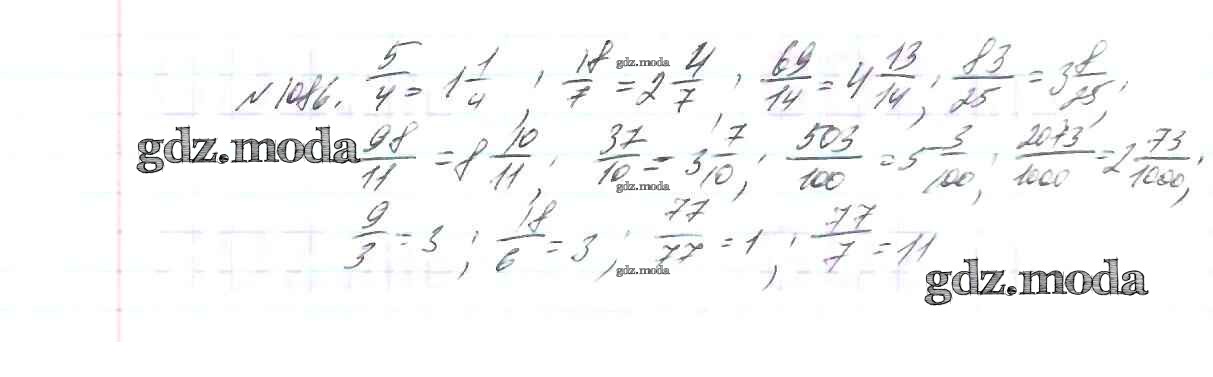 №1086. 5/4 = 1 1/4 ; 18/7 = 2 4/7 ; 69/14 = 4 13/14 ; 83/25 = 3 8/25 ;
gdz.moda
98/11 = 8 10/11 ; 37/10 = 3 7/10 ; 503/100 = 5 3/100 ; 2073/1000 = 2 73/1000 ;
gdz.moda
gdz.moda
9/3 = 3 ; 18/6 = 3 ; 77/77 = 1 ; 77/7 = 11
gdz.moda
gdz.moda